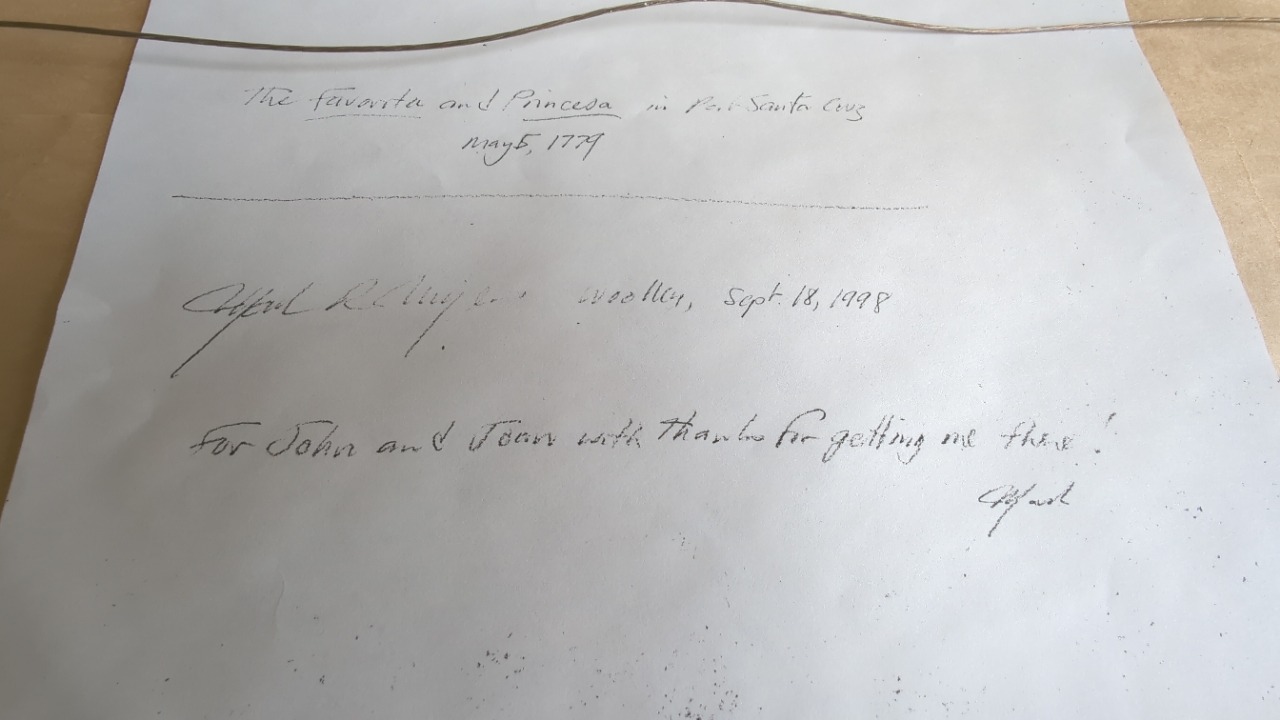 The Favorita and Princesa in Port Santa Cruz
May 5, 1779
Woolley, Sept. 18, 1998
For John and Joan with thanks for getting me there!